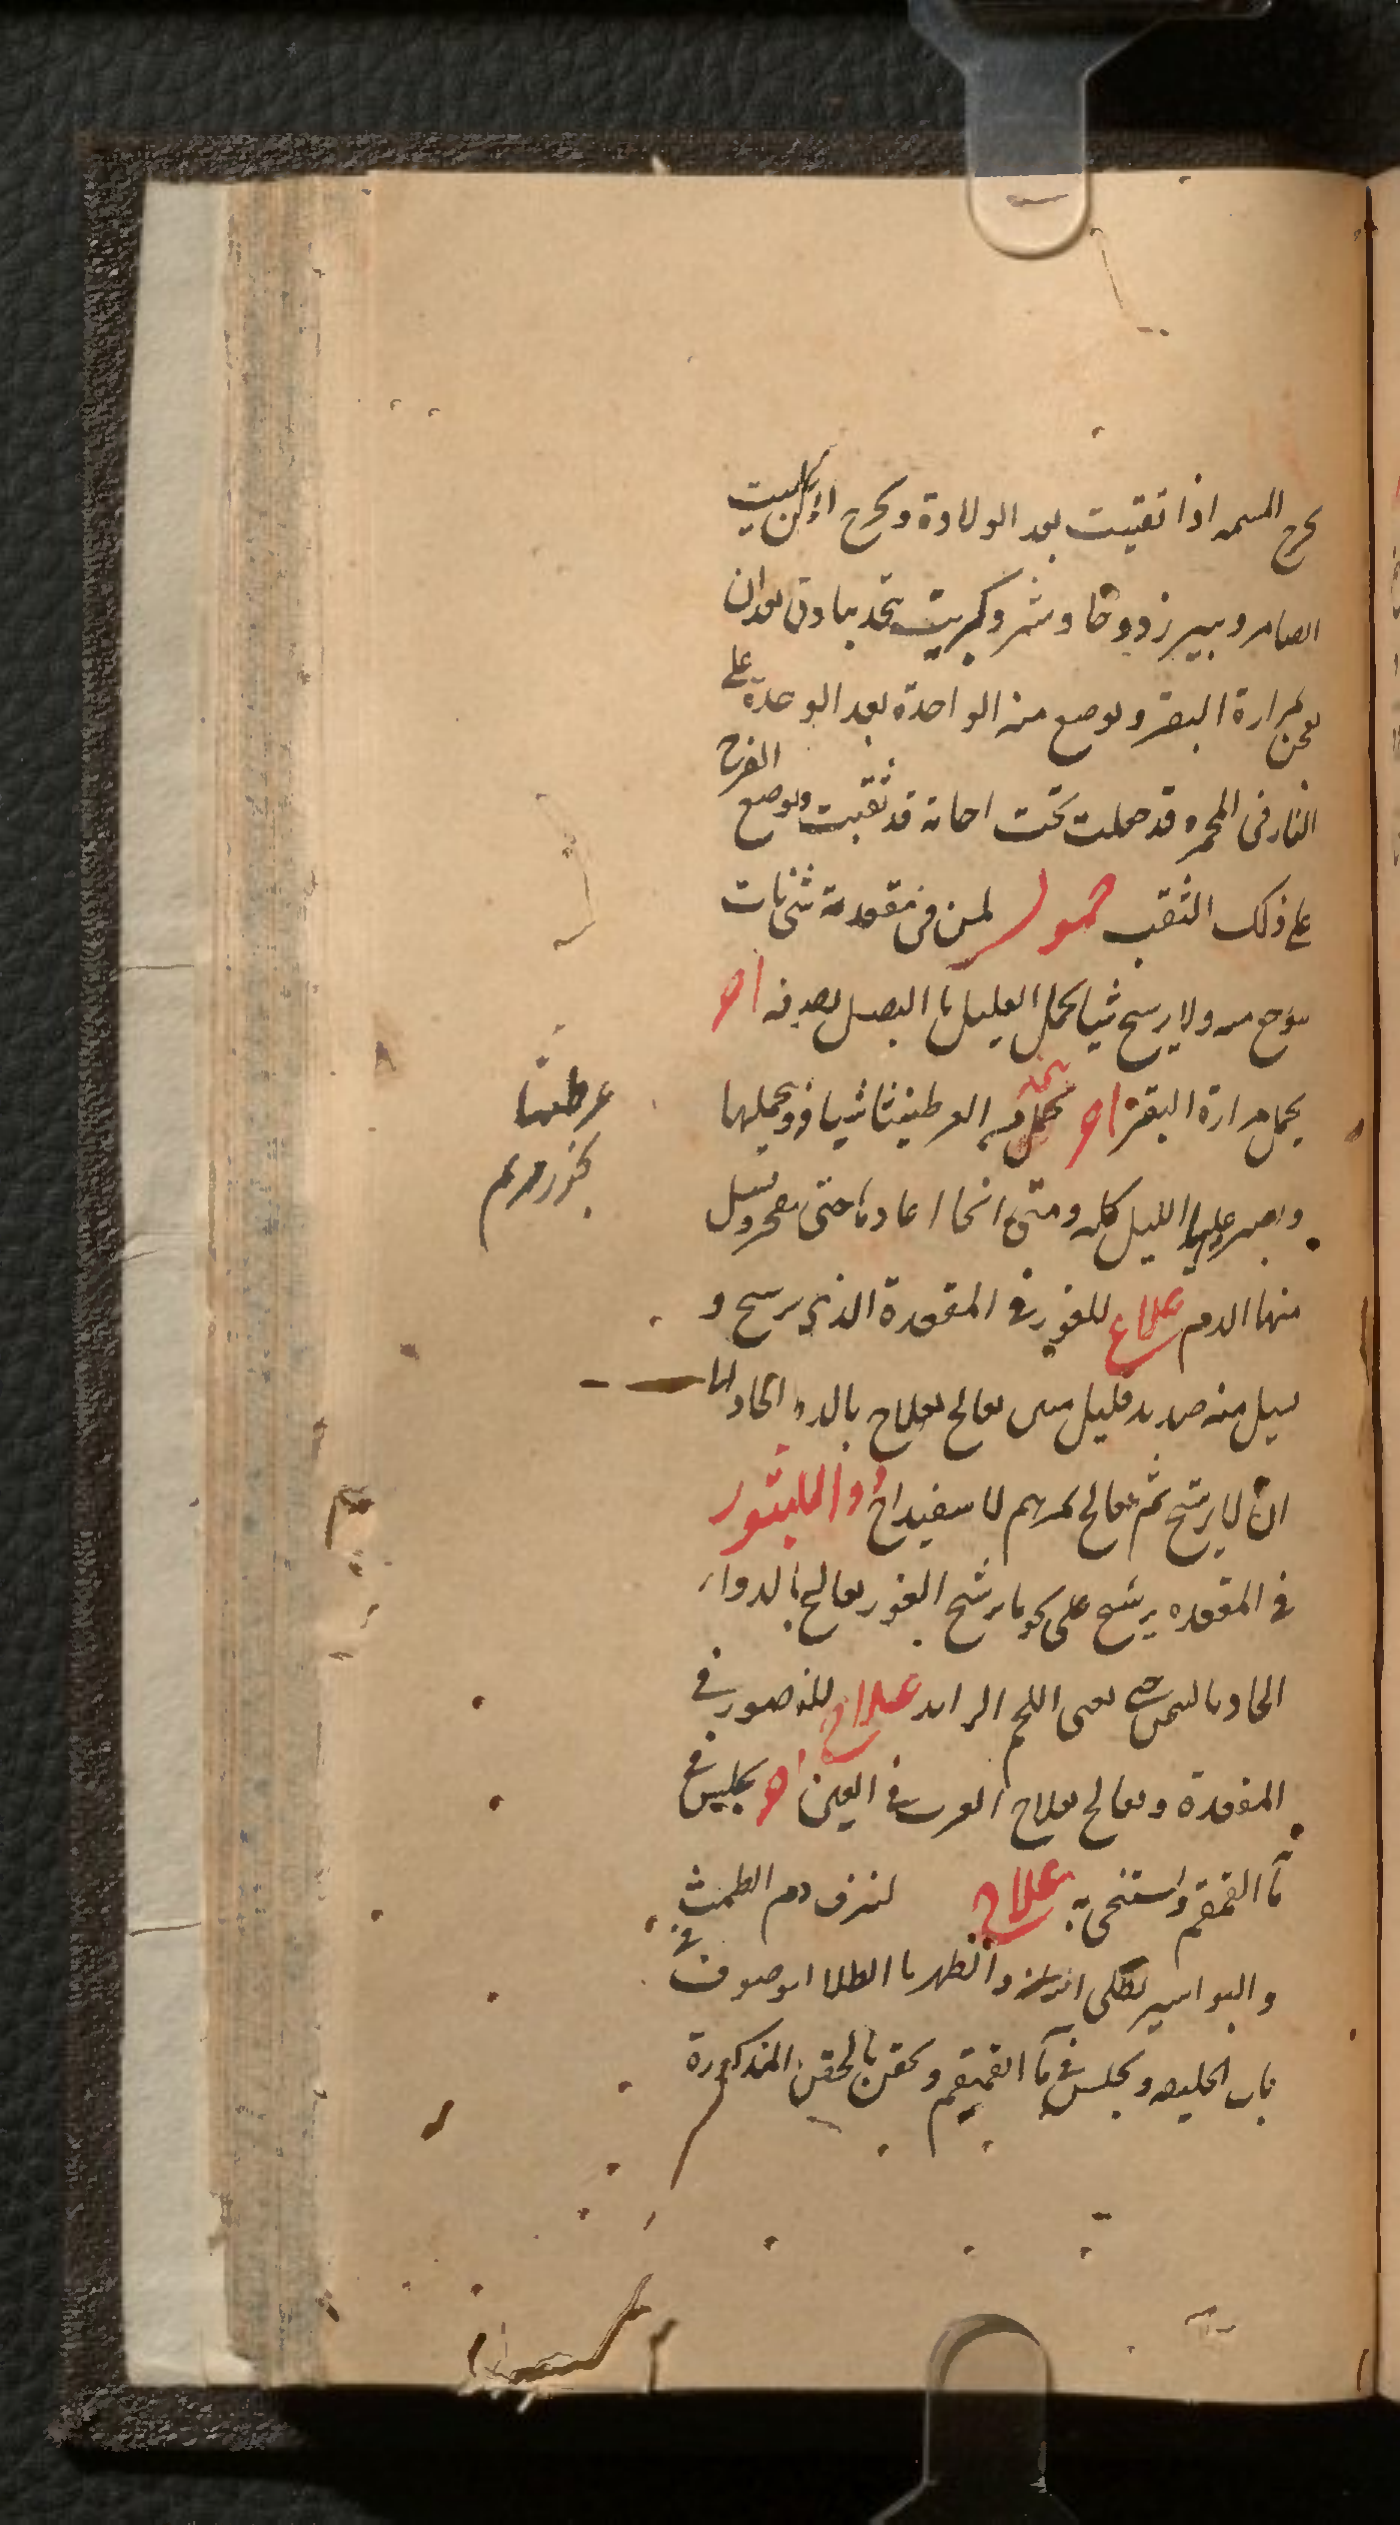 تخرج المشيمه اذا بقيت بعد الولادة وتخرج
وبيرزد وقا وشر وكبريت تتخذ بنادق بعد ان
تعجن بمرارة البقر وتوضع منه الواحدة بعد الوحدة على
النار فى المجمره وقد جعلت تحت اجانة قد ثقبت وتوضع الفرج
على ذلك الثقب حمول لمن فى مقعدته شى نات
يوجع منه ولا يرشح شيا يحمل العليل ما البصل بصوفه اخر
يحمل مرارة البقر اخر يتخذ من العرطنيثا شيافا ويحملها
ويصبر عليها الليل كله ومتى انحل اعادها حتى ينفجر ويسيل
منها الدم علاج للغور فى المقعدة الذي يرشح و
يسيل منه صديد قليل يعالج بعلاج بالدوا الحاد الى
ان لا يرشح ثم يعالج بمرهم الاسفيداج دوا للبثور
فى المقعده يرشح على نحو ما يرشح الغور يعالج بالدوا
الحاد بالسمن حتى يفنى اللحم الزايد علاج للناصور فى
المقعدة ويعالج بعلاج الغرب فى العين اخر يجلس فى
مآ القمقم ويستنجى به علاج لنزف دم الطمث
والبواسير يطلى والظهر بالطلا الموصوف فى
باب الخليفه ويجلس فى مآ القميقم ويحقن بالحقن المذكورة
عرطنيثا
بخور مريم